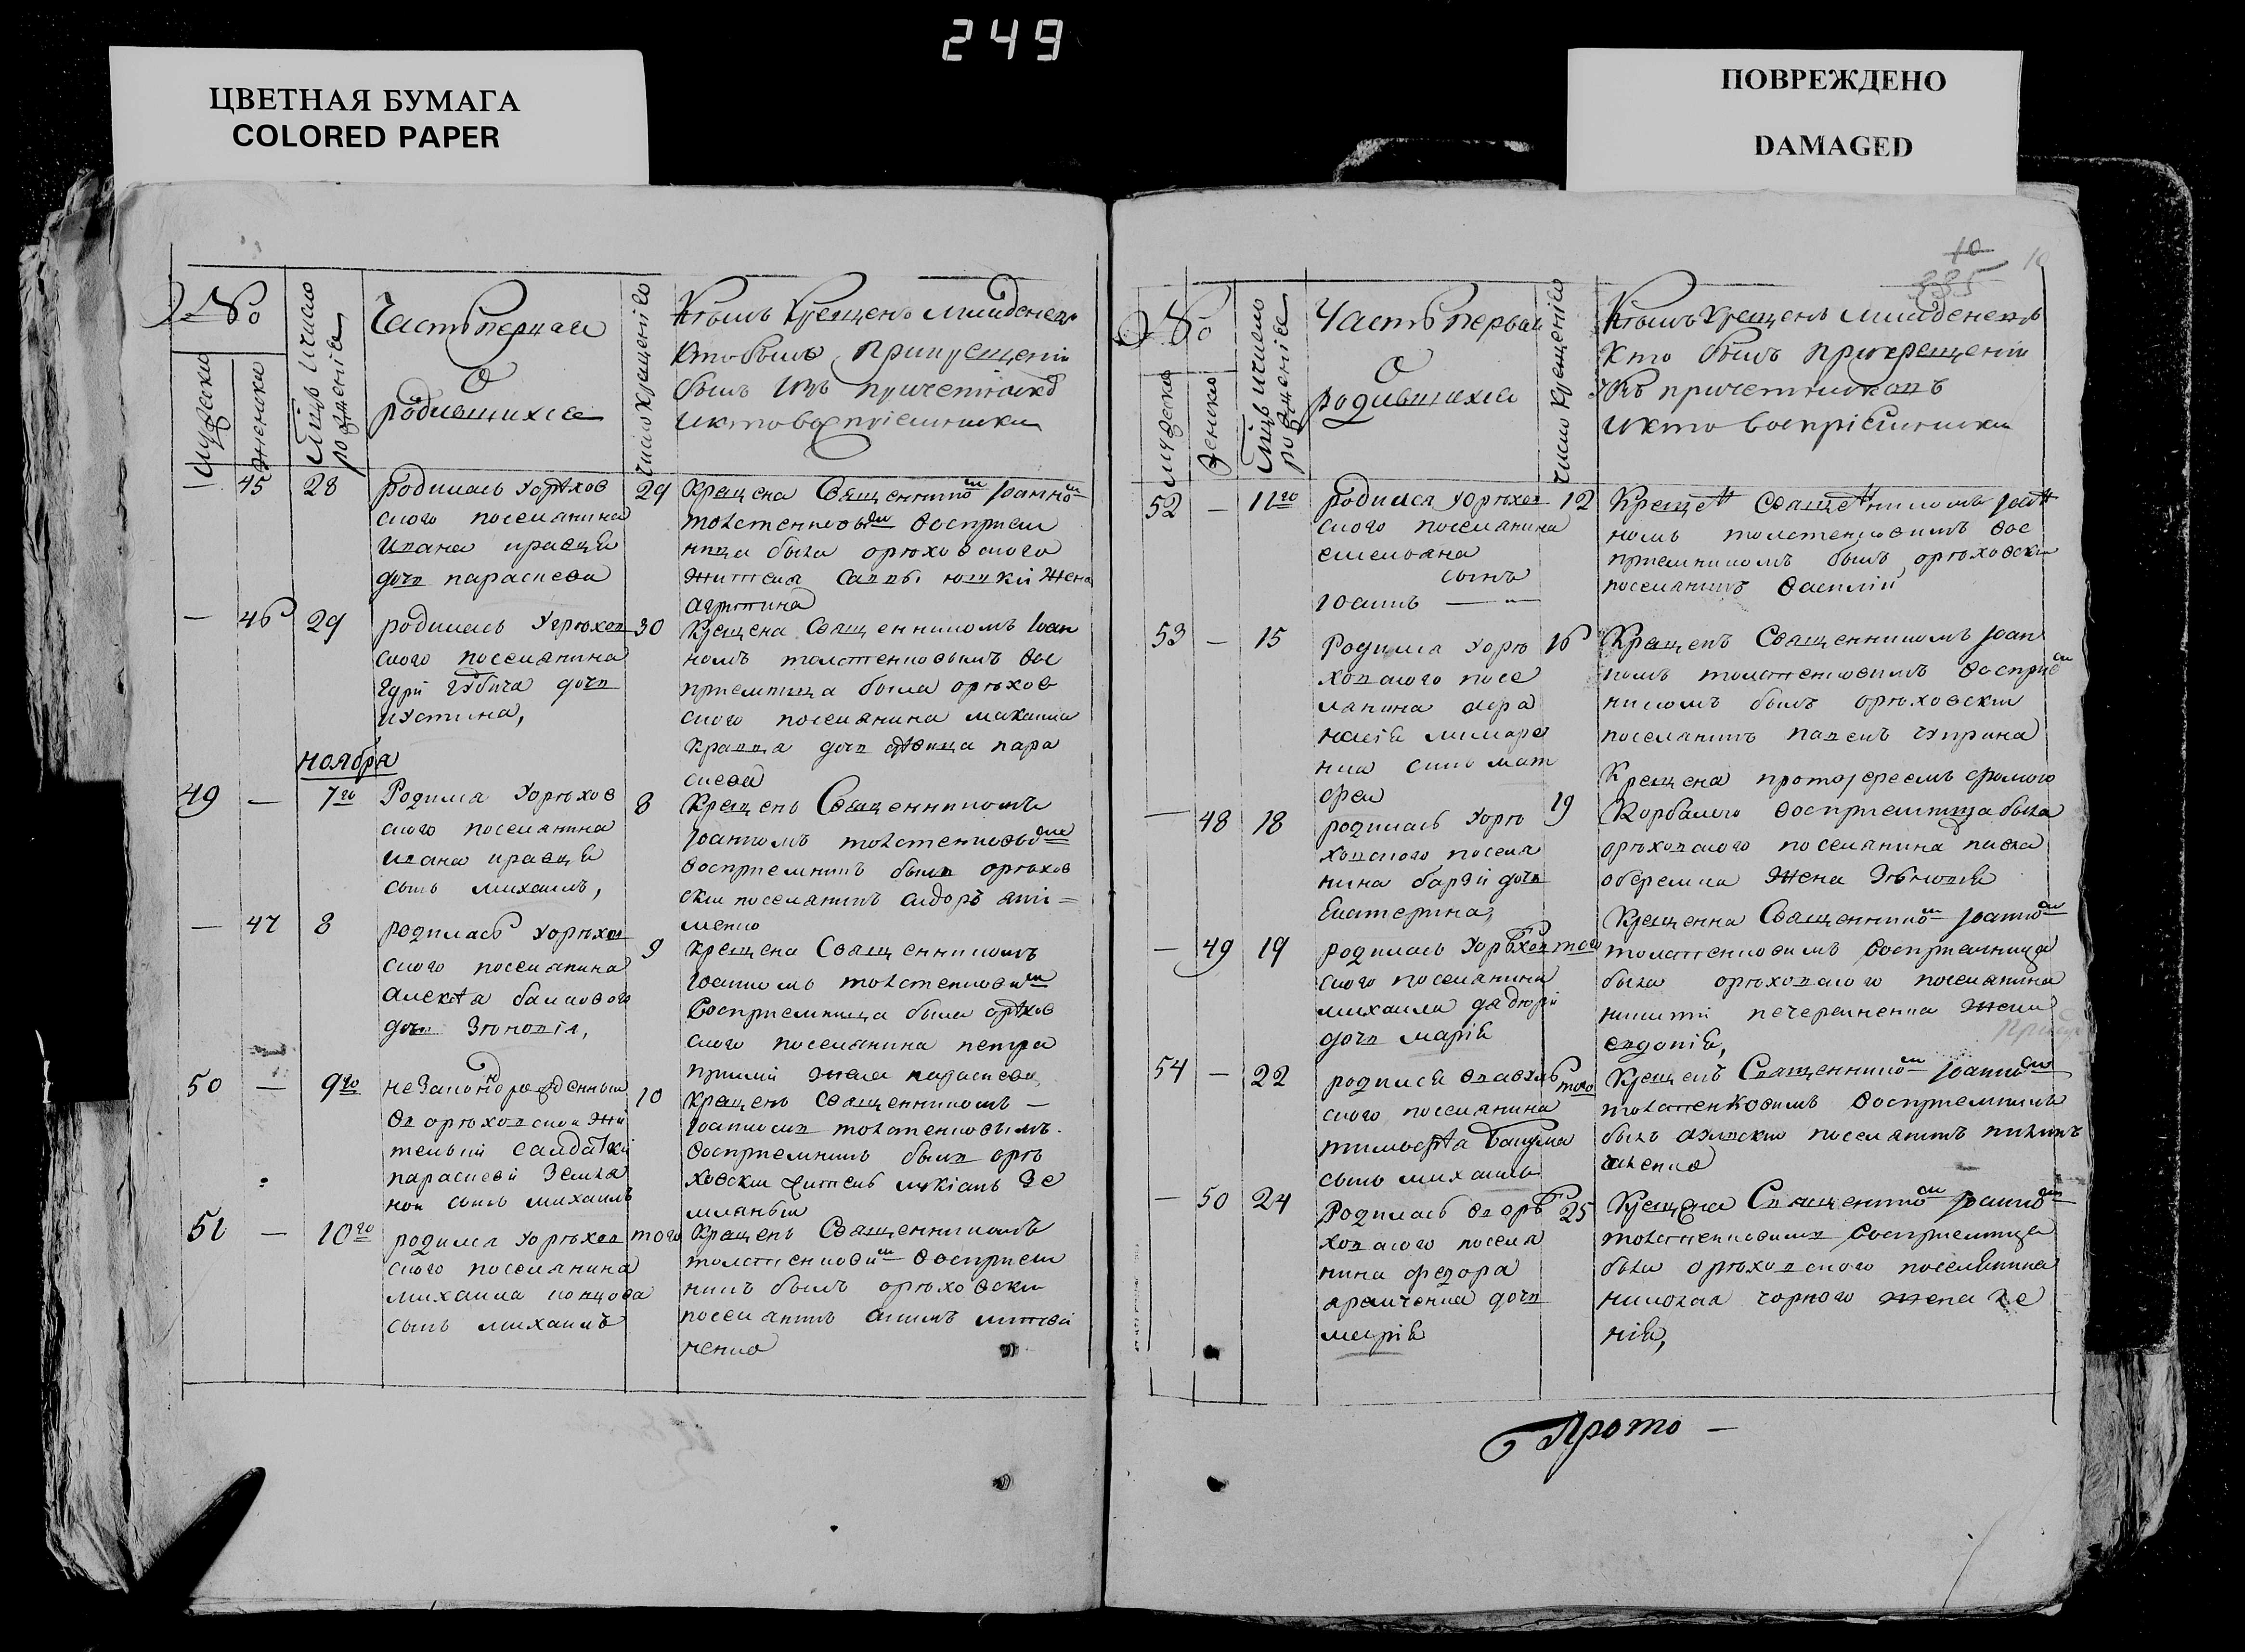 249
ЦВЕТНАЯ БУМАГА
COLORED PAPER
ПОВРЕЖДЕНО
DAMAGED
№
мужеска
женска
Мцъ и число рожденія
Часть первая
О
родившихся
Число крещенія
Кѣмъ крещенъ младенецъ
кто былъ при крещеніи
былъ изъ причетникъ
и кто воспріемники
— 45 28 родилась у орѣхов
ского поселянина
Ивана кравця
дочь параскева
29 Крещена Священнико Іоанно
толстенковы восприем
ница была орѣховского
жителя Саввы жена
агрипина
— 46 29 родилась у орѣхов
ского поселянина
дочь
иустина,
30 Крещена Священникомъ Іоан
номъ толстенковымъ вос
приемница была орѣхов
ского поселянина максима
дочь девица пара
скева
ноября
49 — 7го Родился у орѣхов
ского поселянина
ивана кравця
сынъ михаилъ,
8 Крещенъ Священникомъ
Іоанномъ толстенковы
восприемникъ былъ орѣхов
ски поселянинъ сидоръ
менко
— 47 8 родилась у орѣхов
ского поселянина
дочь Зѣновія,
9 Крещена Священникомъ
Іоанномъ толстенкови
Восприемница была орѣхов
ского поселянина петра
жена параскева
50 — 9го незаконорожденный
въ орѣховской жи
тельки салдатки
параскеви Земля
ной сынъ михаилъ
10 Крещенъ Священникомъ —
Іоанномъ толстенковымъ
восприемникъ былъ орѣ
ховски житель лукіанъ Зе
мляный
51 — 10го родился у орѣхов
ского поселянина
михаила
сынъ михаилъ
того Крещенъ Священникомъ
толстенкови восприем
никъ былъ орѣховски
поселянинъ
ченко
335
10
№
мужеска
женска
Мцъ и число рожденія
Часть первая
О
родившихся
Число крещенія
Кѣмъ крещенъ младенецъ
кто былъ при крещеніи
изъ причетниковъ
и кто воспріемники
52 — 11го родился у орѣхов
ского поселянина
емельяна
сынъ
іоаннъ —
12 Крещен Священникомъ Іоан
номъ толстенковимъ вос
приемникомъ былъ орѣховски
поселянинъ василій
53 — 15 Родился у орѣ
ховского посе
лянина афа
насія
сынъ мат
фей
16 Крещенъ Священникомъ Іоан
номъ толстенковимъ восприем
никомъ былъ орѣховски
поселянинъ павелъ чуприна
— 48 18 родилась у орѣ
ховского поселя
нина дочь
Екатерина,
19 Крещена протоіереемъ фомого
Корбалого восприемница была
орѣховского поселянина павла
жена Зѣновія
— 49 19 родилась у орѣхов
ского поселянина
михаила
дочь марія
того Крещенна Священнико Іоанно
толстенковимъ восприемница
была орѣховского поселянина
никити печериченка жена
евдокія,
54 — 22 родился
ского поселянина
тимофѣа
сынъ михаилъ
того Крещенъ Священнико Іоанно
толстенковимъ восприемникъ
былъ поселянинъ
— 50 24 Родилась въ орѣ
ховского поселя
нина федора
дочь
марія
25 Крещена Священнико Іоанно
толстенковимъ восприемница
была орѣховского поселянина
николая чорного жена Ке
нія,
Прото —